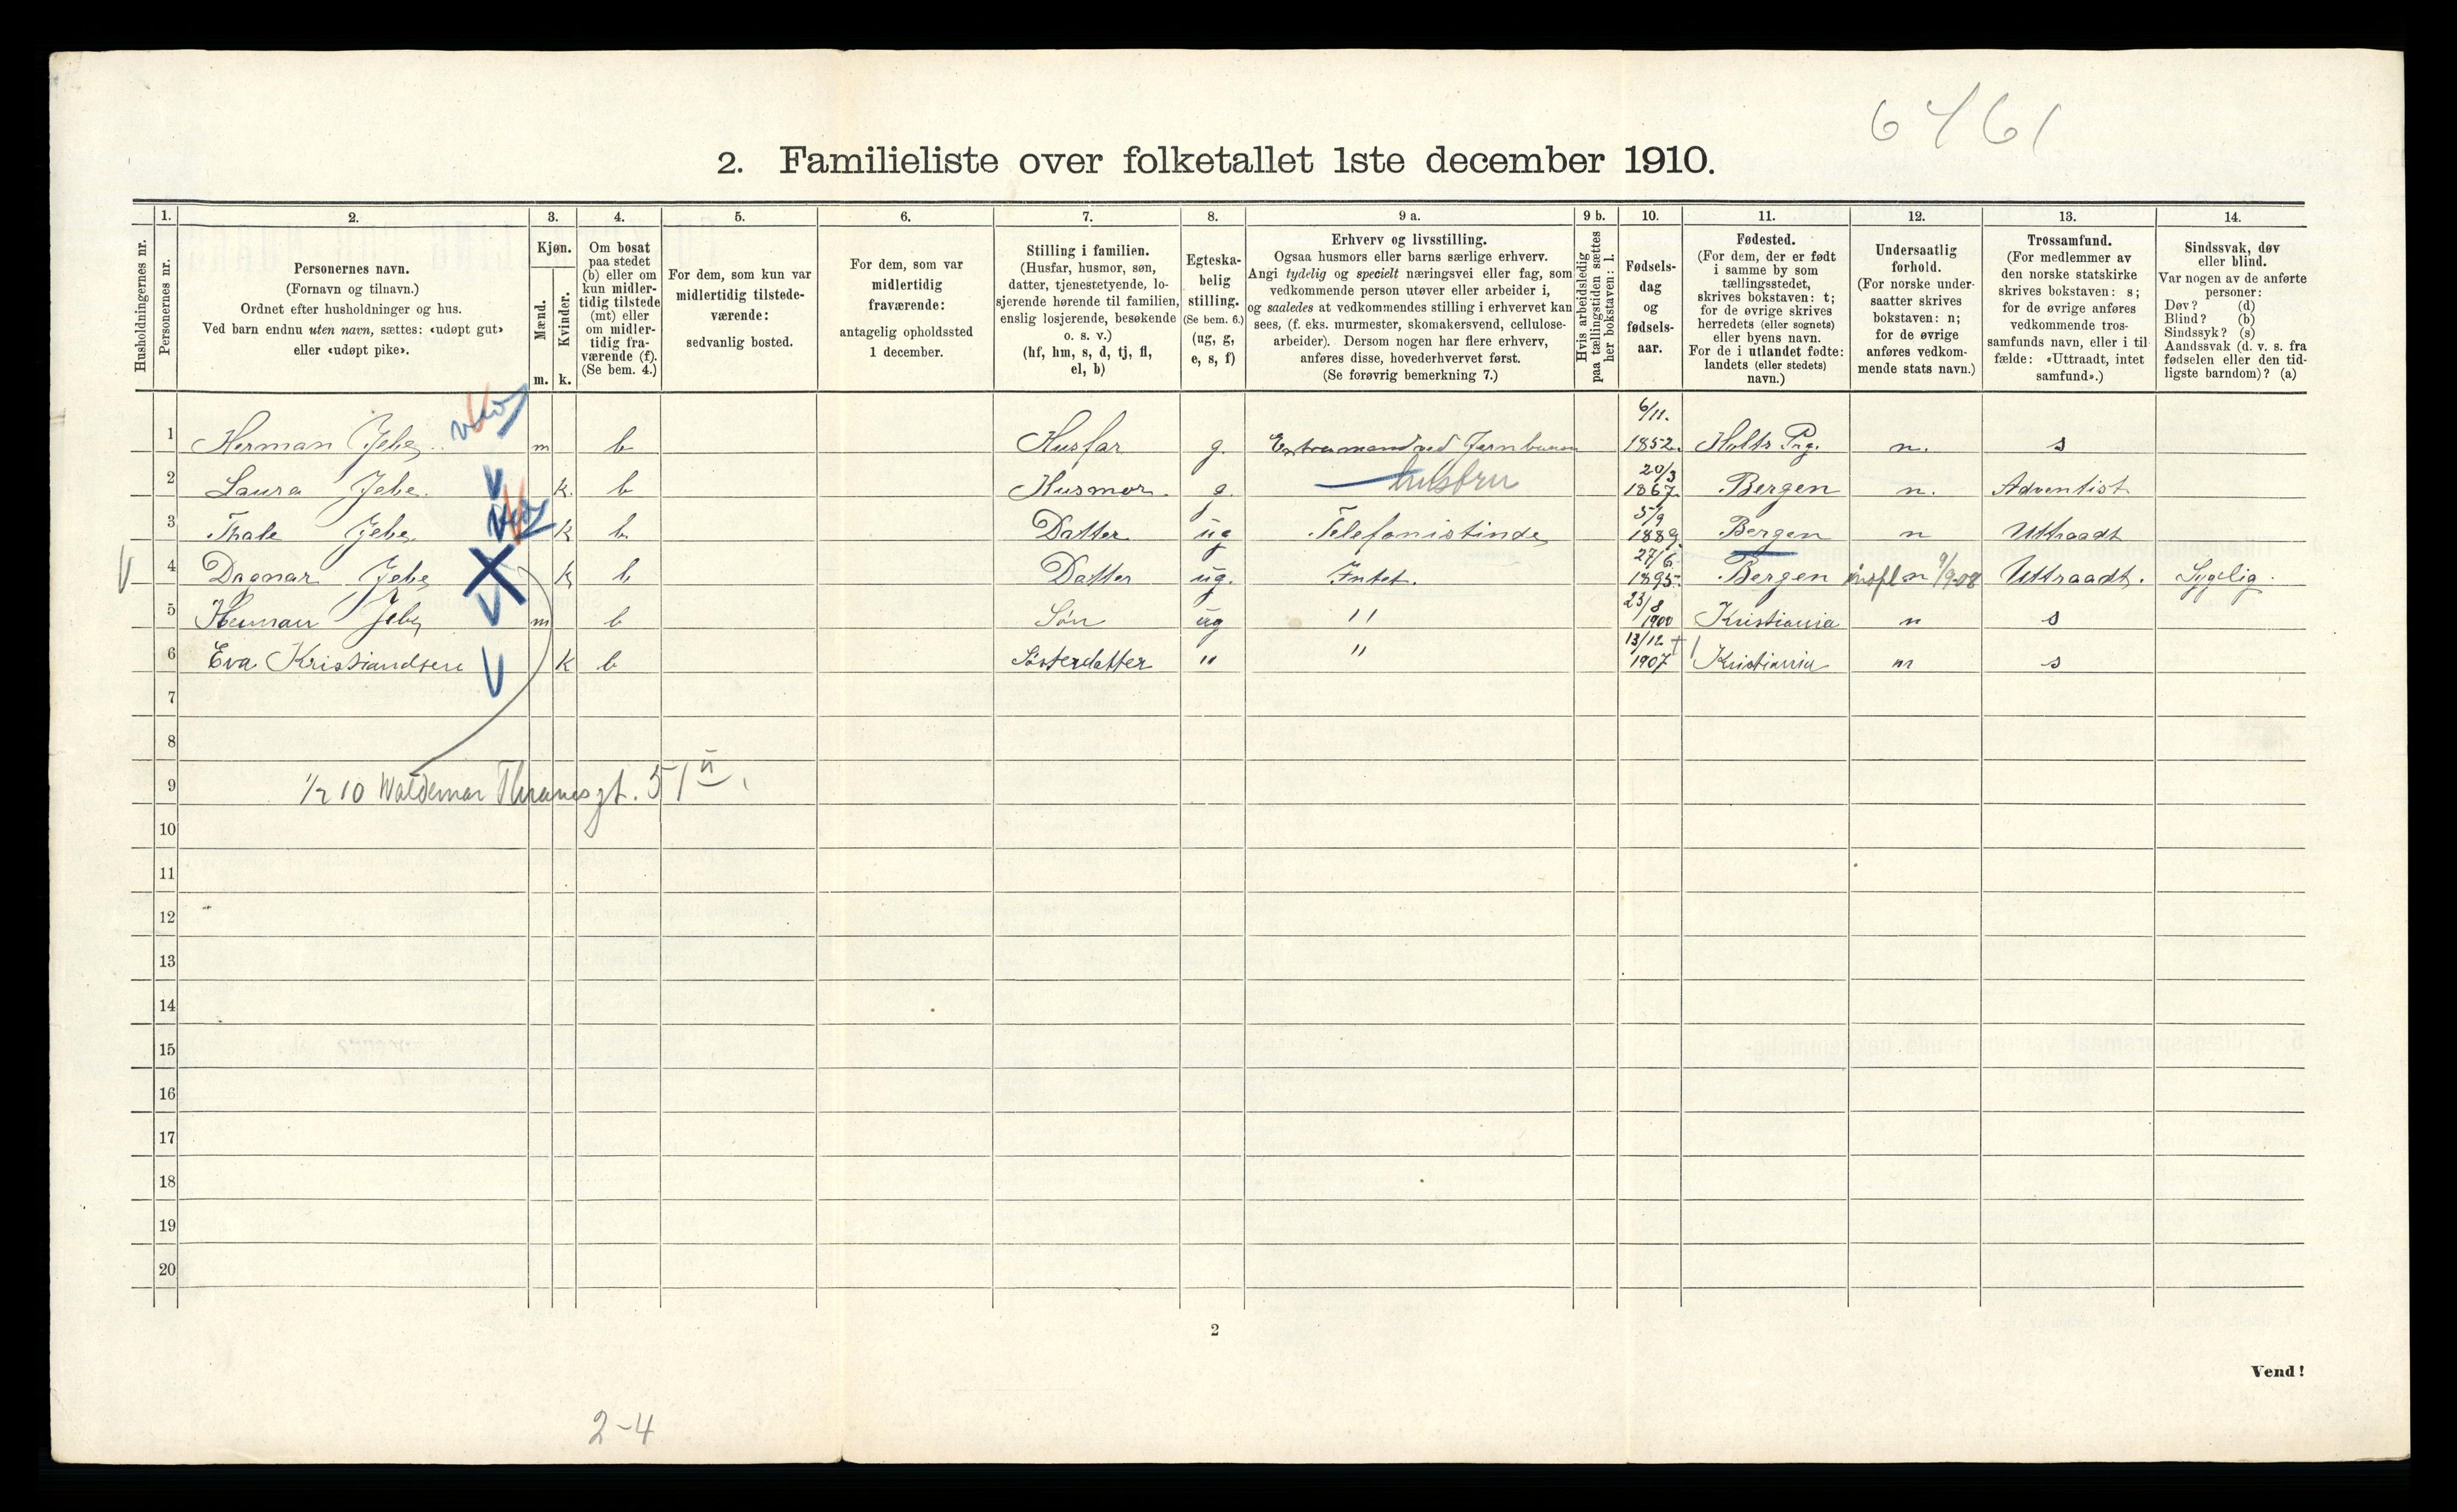 6761
2. Familieliste over folketallet 1ste december 1910.
Husholdningernes nr.
1. Personernes nr.
2. Personernes navn.
(Fornavn og tilnavn.)
Ordnet efter husholdninger og hus.
Ved barn endnu uten navn, sættes: «udøpt gut»
eller «udøpt pike».
3. Kjøn.
Mænd. Kvinder.
m. k.
4. Om bosat
paa stedet
(b) eller om
kun midler-
tidig tilstede
(mt) eller
om midler-
tidig fra-
værende (f).
(Se bem. 4.)
5. For dem, som kun var
midlertidig tilstede-
værende:
sedvanlig bosted.
6. For dem, som var
midlertidig
fraværende:
antagelig opholdssted
1 december.
7. Stilling i familien.
(Husfar, husmor, søn,
datter, tjenestetyende, lo-
sjerende hørende til familien,
enslig losjerende, besøkende
o. s. v.)
(hf, hm, s, d, tj, fl,
el, b)
8. Egteska-
belig
stilling.
(Se bem. 6.)
(ug, g,
e, s, f)
9 a. Erhverv og livsstilling.
Ogsaa husmors eller barns særlige erhverv.
Angi tydelig og specielt næringsvei eller fag, som
vedkommende person utøver eller arbeider i,
og saaledes at vedkommendes stilling i erhvervet kan
sees, (f. eks. murmester, skomakersvend, cellulose-
arbeider). Dersom nogen har flere erhverv,
anføres disse, hovederhvervet først.
(Se forøvrig bemerkning 7.)
9 b. Hvis arbeidsledig
paa tællingstiden sættes
her bokstaven: l.
10. Fødsels-
dag
og
fødsels-
aar.
11. Fødested.
(For dem, der er født
i samme by som
tællingsstedet,
skrives bokstaven: t;
for de øvrige skrives
herredets (eller sognets)
eller byens navn.
For de i utlandet fødte:
landets (eller stedets)
navn.)
12. Undersaatlig
forhold.
(For norske under-
saatter skrives
bokstaven: n;
for de øvrige
anføres vedkom-
mende stats navn.)
13. Trossamfund.
(For medlemmer av
den norske statskirke
skrives bokstaven: s;
for de øvrige anføres
vedkommende tros-
samfunds navn, eller i til-
fælde: «Uttraadt, intet
samfund».)
14. Sindssvak, døv
eller blind.
Var nogen av de anførte
personer:
Døv? (d)
Blind? (b)
Sindssyk? (s)
Aandssvak (d. v. s. fra
fødselen eller den tid-
ligste barndom)? (a)
1 Herman Jebe m b Husfar g. Extramand ved Jernbanen 6/11. 1852. Holts Prg. n. s
2 Laura Jebe. k. b Husmor. g. hustru 20/3 1867. Bergen n. Adventist
3 Thale Jebe k b Datter ug Telefonistinde 5/9 1889. Bergen n Uttraadt
4 Dagmar Jebe k b Datter ug. Intet. 27/6 1895. Bergen n 9/9-08 Uttraadt. Sygelig.
5 Herman Jebe m b Søn ug " 23/8 1900 Kristiania n s
6 Eva Kristiandsen k b Søsterdatter " " 13/12 1907 Kristiania n s
7
8
9 1/2 10 Waldemar Thranesgt. 51 II.
10
11
12
13
14
15
16
17
18
19
20
2
Vend!
2-4